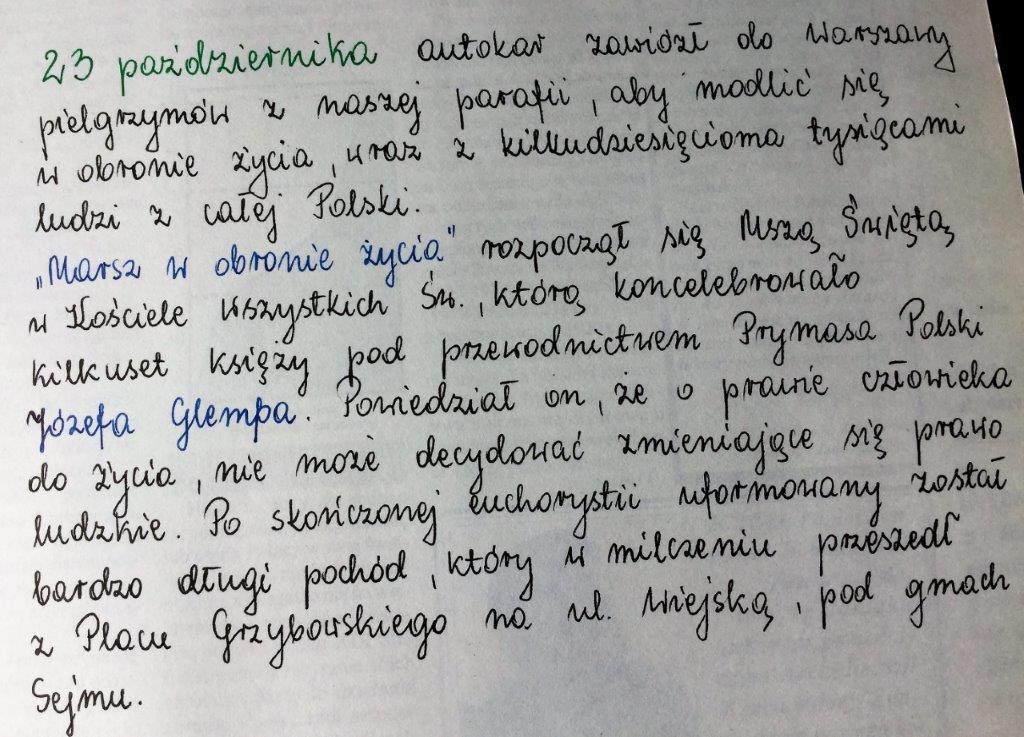 23 października autokar zawiózł do Warszawy
pielgrzymów z naszej parafii, aby modlić się
w obronie życia, wraz z kilkudziesięcioma tysiącami
ludzi z całej Polski.
„Marsz w obronie życia" rozpoczął się Mszą Świętą
w Kościele Wszystkich Św., którą koncelebrowało
kilkuset księży pod przewodnictwem Prymasa Polski
Józefa Glempa. Powiedział on, że o prawie człowieka
do życia, nie może decydować zmieniające się prawo
ludzkie. Po skończonej euchorystii uformowany został
bardzo długi pochód, który w milczeniu przeszedł
z Placu Grzybowskiego na ul. Wiejską, pod gmach
Sejmu.